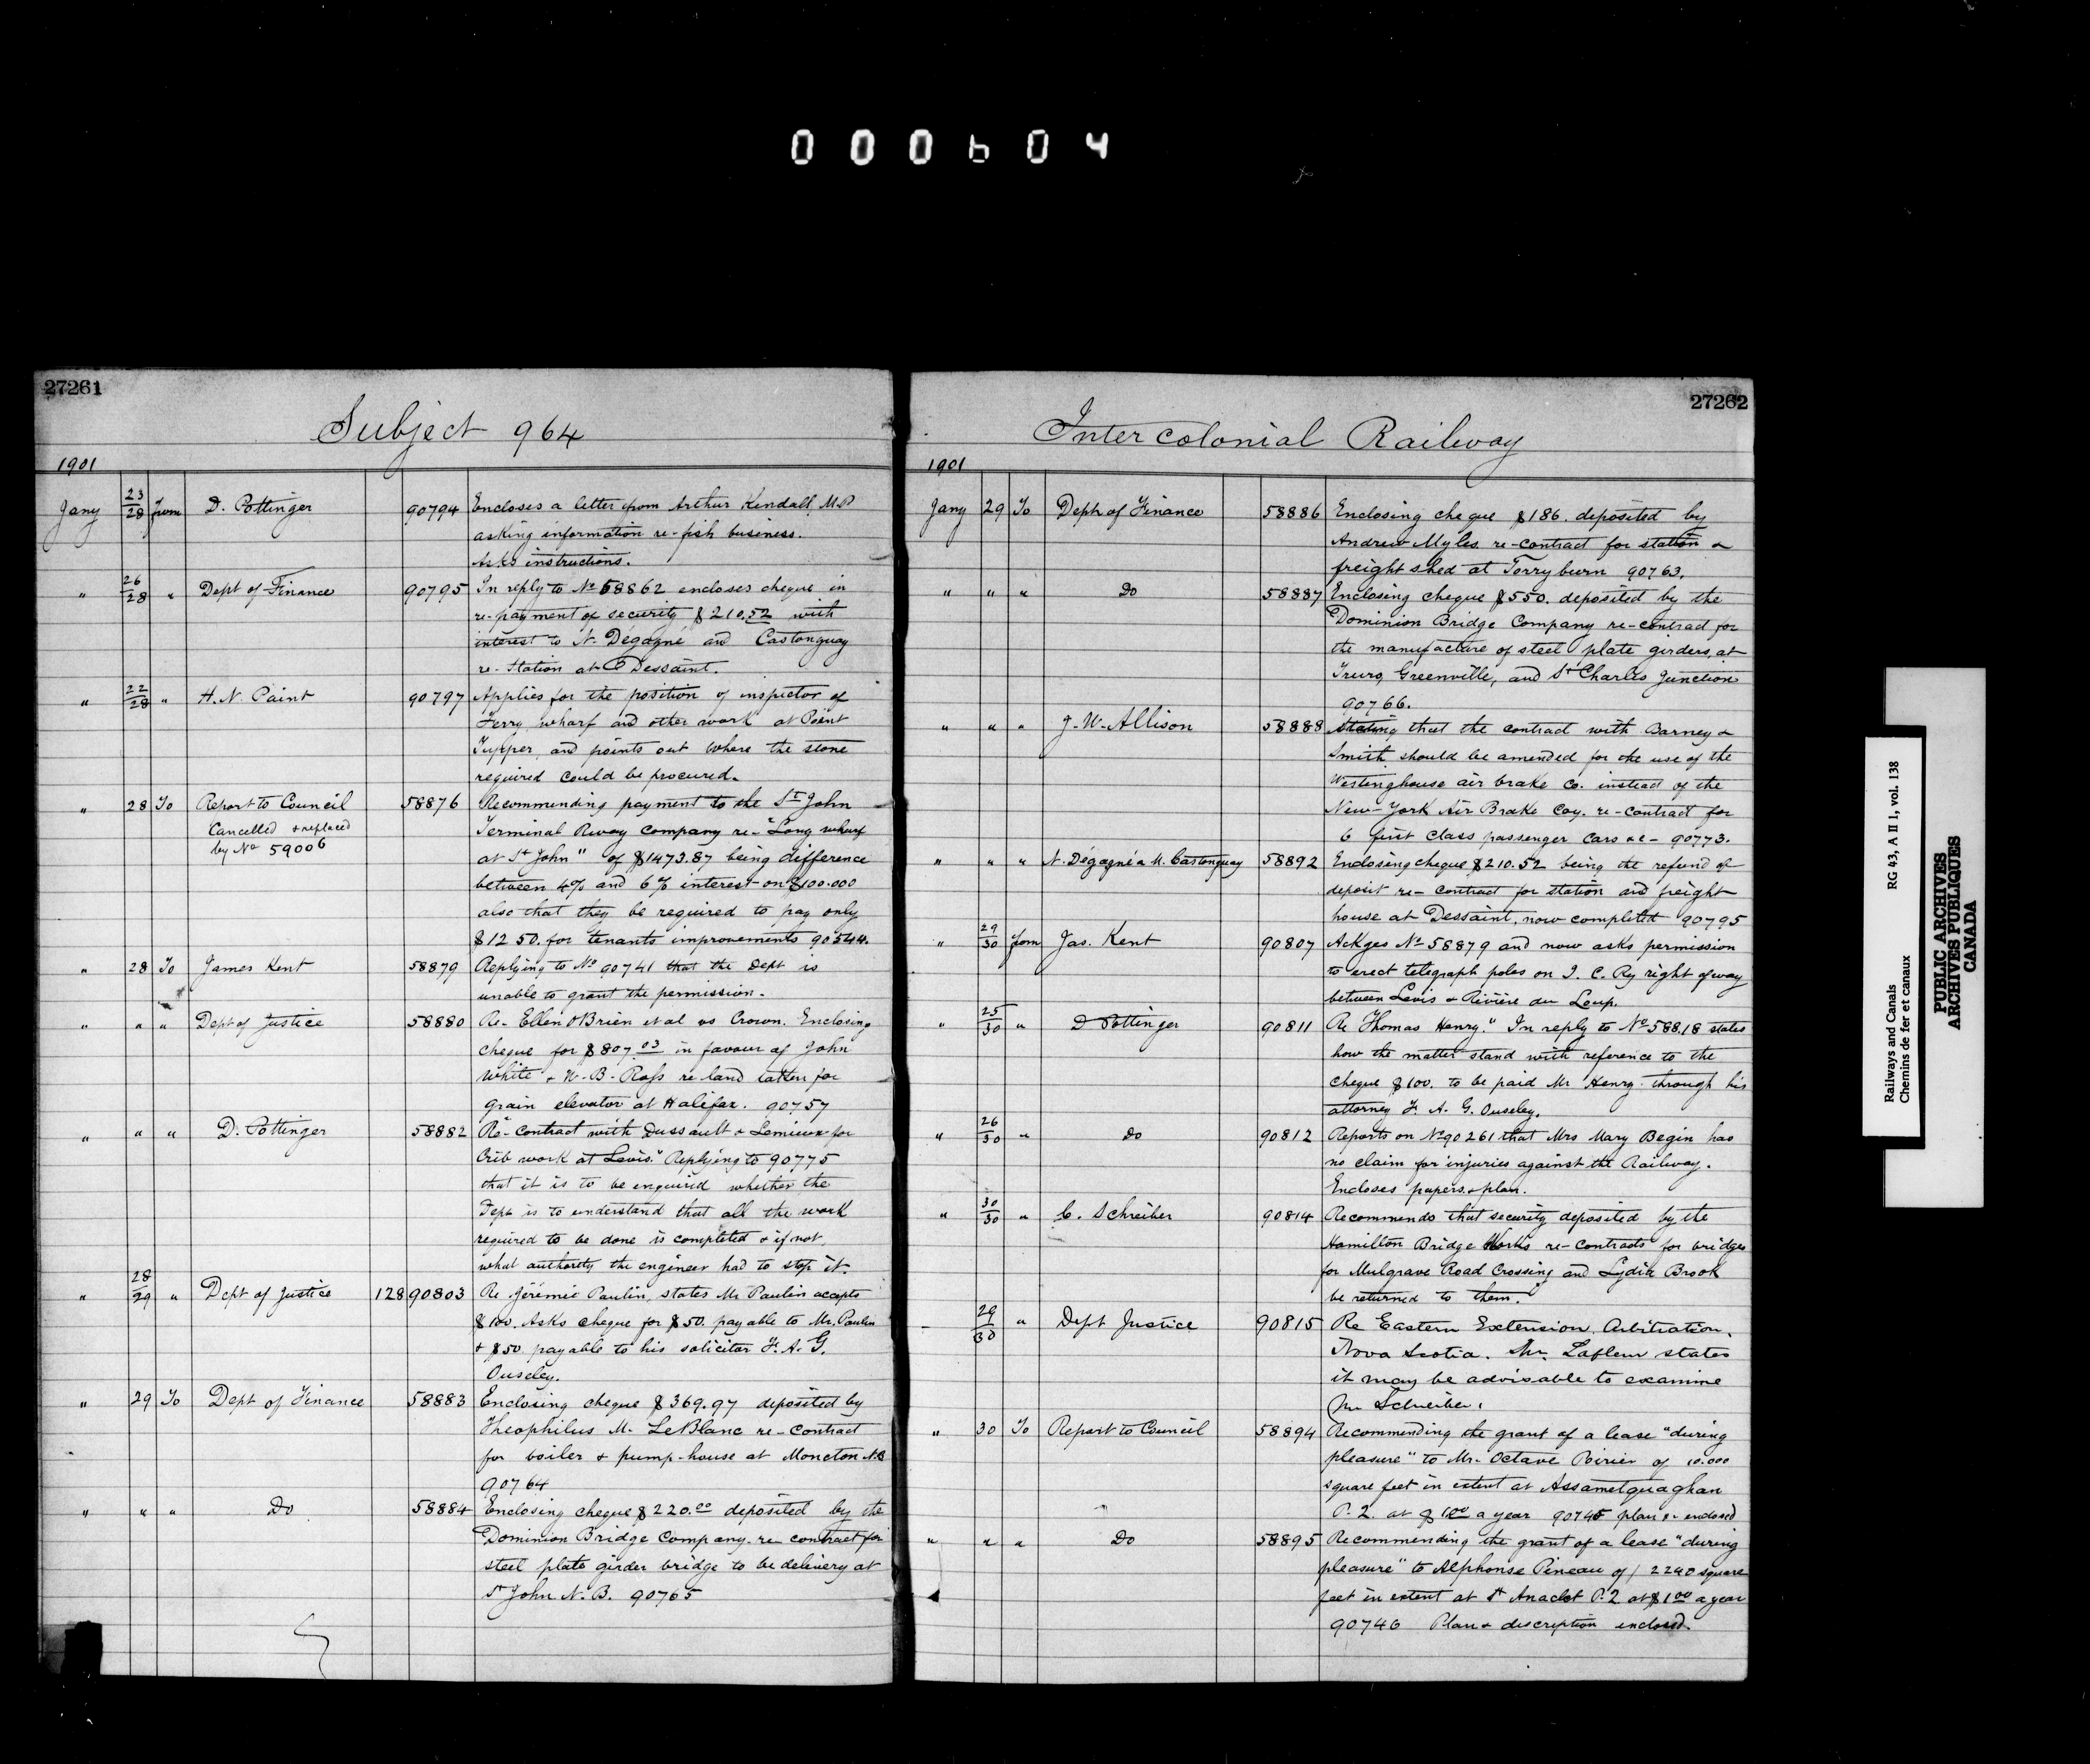 000604
27261
Subject 964
1901
Jany 23/28 from D. Pottinger 90794 Encloses a letter from Arthur Kendall, M.P
asking information re-fish business.
Asks instructions.
" 26/28 " Dept of Finance 90795 In reply to No 58862 encloses cheque in
re-payment of security $210.52 with
interest to N. Dégagné and Castonguay
re-Station at Dessaint.
" 22/28 " H. N. Paint 90797 Applies for the position of inspector of
Ferry wharf and other work at Point
Tupper, and points out where the stone
required could be procured.
" 28 To Report to Council 58876 Recommending payment to the St John
Cancelled & replaced
by No 59006
Terminal Rway Company re- "Long wharf
at St John" of $1473.87 being difference
between 4% and 6% interest on $100.000
also that they be required to pay only
$1250. for tenants improvements 90544.
" 28 To James Kent 58879 Replying to No 90741 that the Dept is
unable to grant the permission.
" " " Dept of Justice 58880 Re- Ellen O'Brien et al vs Crown. Enclosing
cheque for $807.03 in favour of John
White & W. B. Ross re land taken for
grain elevator at Halifax. 90757
" " " D. Pottinger 58882 "Re-Contract with Dussault & Lemieux for
Crib work at Levis." Replying to 90775
that it is to be enquired whether the
Dept is to understand that all the work
required to be done is completed & if not,
what authority the engineer had to stop it.
" 28/29 " Dept of Justice 128 90803 Re Jérémie Paulin, states Mr Paulin accepts
$100. Asks cheque for $50. payable to Mr. Paulin
& $50 payable to his solicitor F. A. G.
Ouseley.
" 29 To Dept of Finance 58883 Enclosing cheque $369.97 deposited by
Theophilus M. LeBlanc re-contract
for boiler & pump-house at Moncton N.B
90764
" " " Do 58884 Enclosing cheque $220.00 deposited by the
Dominion Bridge Company. re- contract for
steel plate girder bridge to be delivery at
St John N. B. 90765
27262
Intercolonial Railway
1901
Jany 29 To Dept of Finance 58886 Enclosing cheque $186. deposited by
Andrew Myles. re-contract for station &
freight shed at Torryburn 90763.
" " " Do 58887 Enclosing cheque $550. deposited by the
Dominion Bridge Company re-contract for
the manufacture of steel plate girders, at
Truro, Greenville, and St Charles Junction
90766.
" " " J. W. Allison 58888 Stating that the contract with Barney &
Smith should be amended for the use of the
Westinghouse air brake Co. instead of the
New-York Air Brake Coy. re-contract for
6 first class passenger cars &c- 90773.
" " " N. Dégagné & M. Castonguay 58892 Enclosing cheque $210.52 being the refund of
deposit re- contract for station and freight
house at Dessaint, now completed 90795
" 29/30 from Jas. Kent 90807 Ackges No 58879 and now asks permission
to erect telegraph poles on I. C. Ry right of way
between Levis & Rivière du Loup.
" 25/30 " D Pottinger 90811 Re Thomas Henry." In reply to No 58818 states
how the matter stand with reference to the
cheque $100. to be paid Mr Henry through his
attorney F. A. G. Ouseley.
" 26/30 " Do 90812 Reports on No 90261 that Mrs Mary Begin has
no claim for injuries against the Railway.
Encloses papers & plan.
" 30/30 " C. Schreiber 90814 Recommends that security deposited by the
Hamilton Bridge Works re-contracts for bridges
for Mulgrave Road Crossing and Lydia Brook
be returned to them.
29/30 " Dept Justice 90815 Re Eastern Extension Arbitration.
Nova Scotia. Mr. Lafleur states
it may be advisable to examine
Mr Schreiber.
" 30 To Report to Council 58894 Recommending the grant of a lease "during
pleasure" to Mr. Octave Pirier of 10.000
square feet in extent at Assametquaghan
P.2. at $1.00 a year 90745 plan &c enclosed
" " " Do 58895 Recommending the grant of a lease "during
pleasure" to Alphonse Pineau of 2290 square
feet in extent at St Anaclet P.2 at $1.00 a year
90746 Plan & discription enclosed.
Railways and Canals RG 43, A II 1, vol. 138
Chemins de fer et canaux
PUBLIC ARCHIVES
ARCHIVES PUBLIQUES
CANADA